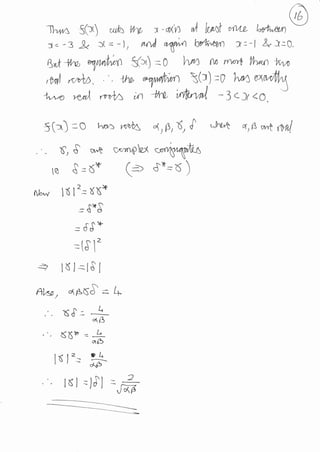 16
Thus f(x) cuts the x-axis at least once between
x = -3 & x = -1, and again between x = -1 & x = 0.
But the equation f(x) = 0 has no more than two
real roots. ∴ the equation f(x) = 0 has exactly
two real roots in the interval -3 < x < 0.
f(x) = 0 has roots α, β, γ, δ where α, β are real
∴ γ, δ are complex conjugates
ie δ = γ* (⇒ δ* = γ)
Now |γ|² = γγ*
= δ*δ
= δδ*
= |δ|²
⇒ |γ| = |δ|
Also, αβγδ = 4
∴ γδ = 4/αβ
∴ γγ* = 4/αβ
|γ|² = 4/αβ
∴ |γ| = |δ| = 2/√αβ